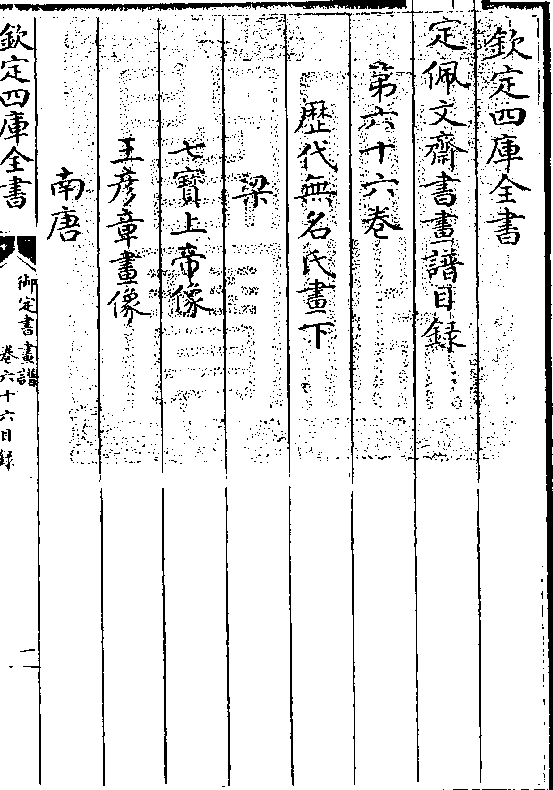 欽定四庫全書
定佩文齋書畫譜目録
第六十六卷
歴代無名氏畫下
梁
七寶上帝像
王彦章畫像
南唐
欽定四庫全書
御定書畫譜
卷六十六目録
一